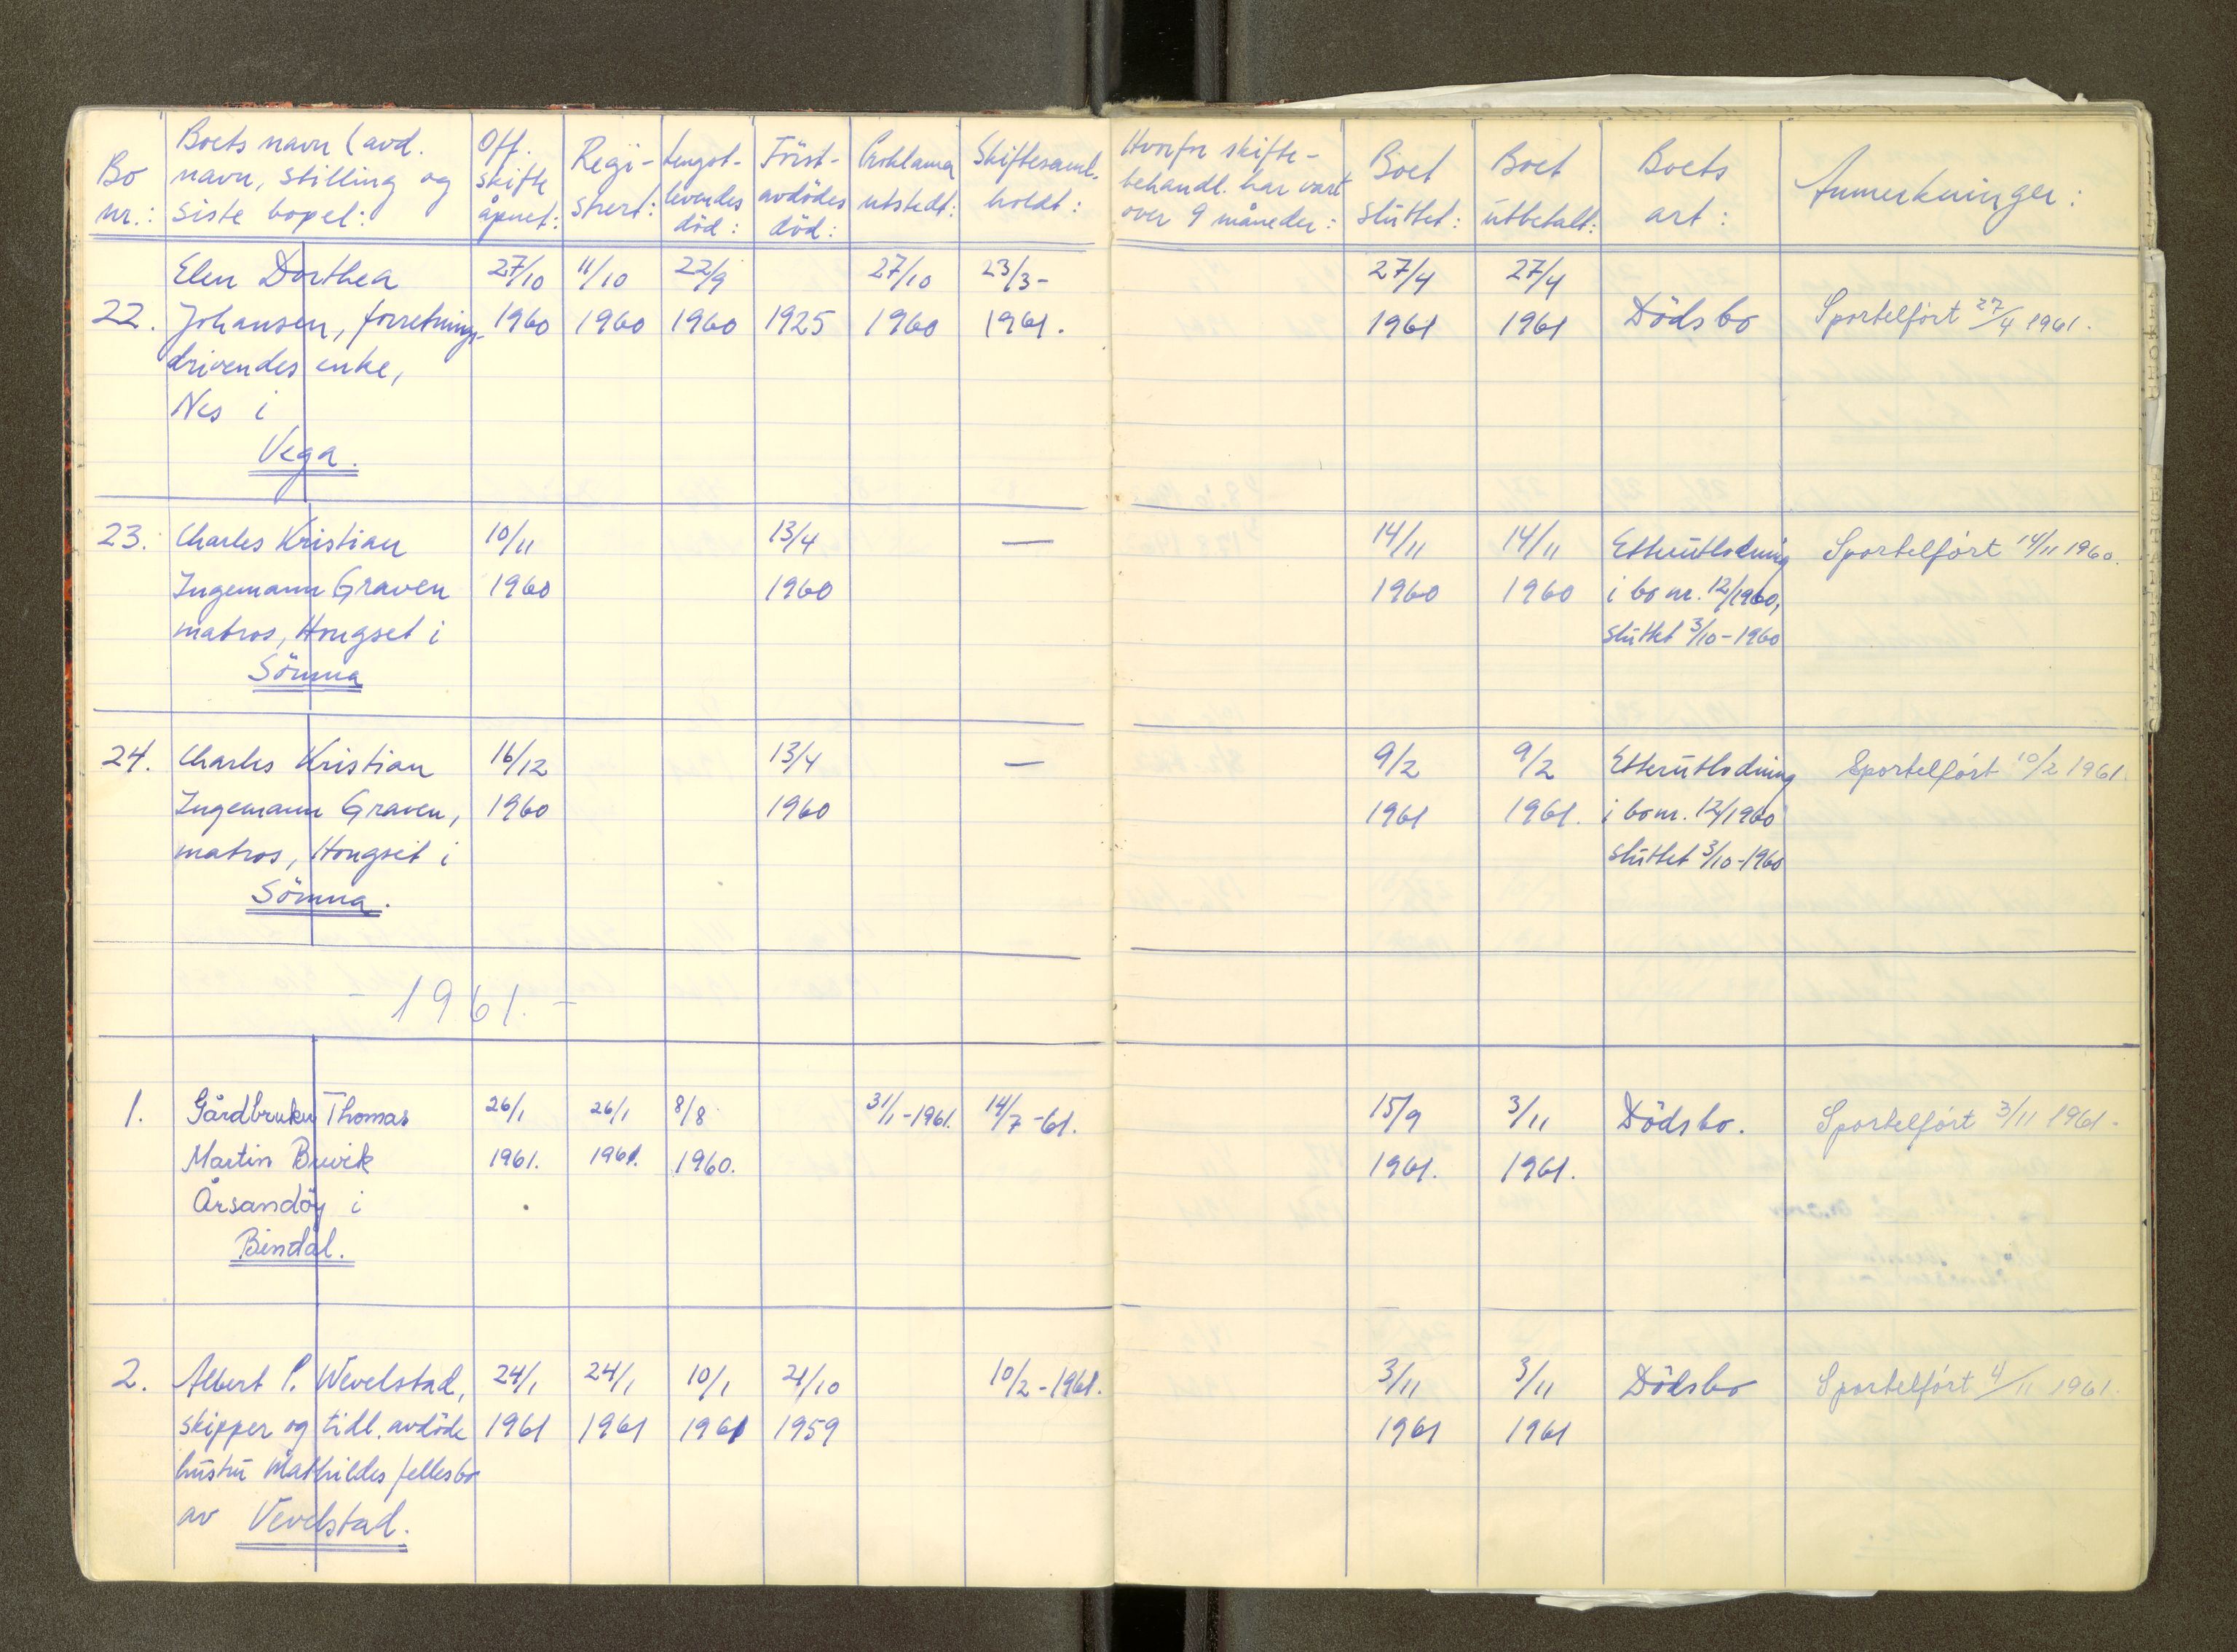 Bo nr.: | Boets navn (avd. navn, stilling og siste bopel: | Off. skifte åpnet: | Regi-strert: | Lengst-levendes död: | Först-avdödes död: | Proklama utstedt: | Skiftesaml. holdt: | Hvorfor skifte-behandl. har vart over 9 måneder: | Boet sluttet: | Boet utbetalt: | Boets art: | Anmerkninger:
Elen Dorthea | 27/10 | 11/10 | 22/9 | | 27/10 | 23/3- | | 27/4 | 27/4
22. | Johansen, forretnings- | 1960 | 1960 | 1960 | 1925 | 1960 | 1961. | | 1961 | 1961 | Dödsbo | Sportelfört 27/4 1961.
drivendes enke,
Nes i
Vega.
23. | Charles Kristian | 10/11 | | | 13/4 | | — | | 14/11 | 14/11 | Etterutlodning | Sportelfört 14/11 1960.
Ingemann Graven | 1960 | | | 1960 | | | | 1960 | 1960 | i bo nr. 12/1960,
matros, Hongset i | sluttet 3/10-1960
Sömna
24. | Charles Kristian | 16/12 | | | 13/4 | | — | | 9/2 | 9/2 | Etterutlodning | Sportelfört 10/2 1961.
Ingemann Graven, | 1960 | | | 1960 | | | | 1961 | 1961. | i bo nr. 12/1960
matros, Hongset i | sluttet 3/10-1960
Sömna.
- 1961. -
1. | Gårdbruker Thomas | 26/1 | 26/1 | 8/8 | | 31/1-1961. | 14/7-61. | | 15/9 | 3/11 | Dödsbo. | Sportelfört 3/11 1961.
Martin Buvik | 1961. | 1961. | 1960. | | | | | 1961. | 1961.
Årsandöy i
Bindal.
2. | Albert P. Wevelstad, | 24/1 | 24/1 | 10/1 | 21/10 | | 10/2-1961. | | 3/11 | 3/11 | Dödsbo | Sportelfört 4/11 1961.
skipper og tidl. avdöde | 1961 | 1961 | 1961 | 1959 | | | | 1961 | 1961
hustru Mathildes fellesbo
av Vevelstad.